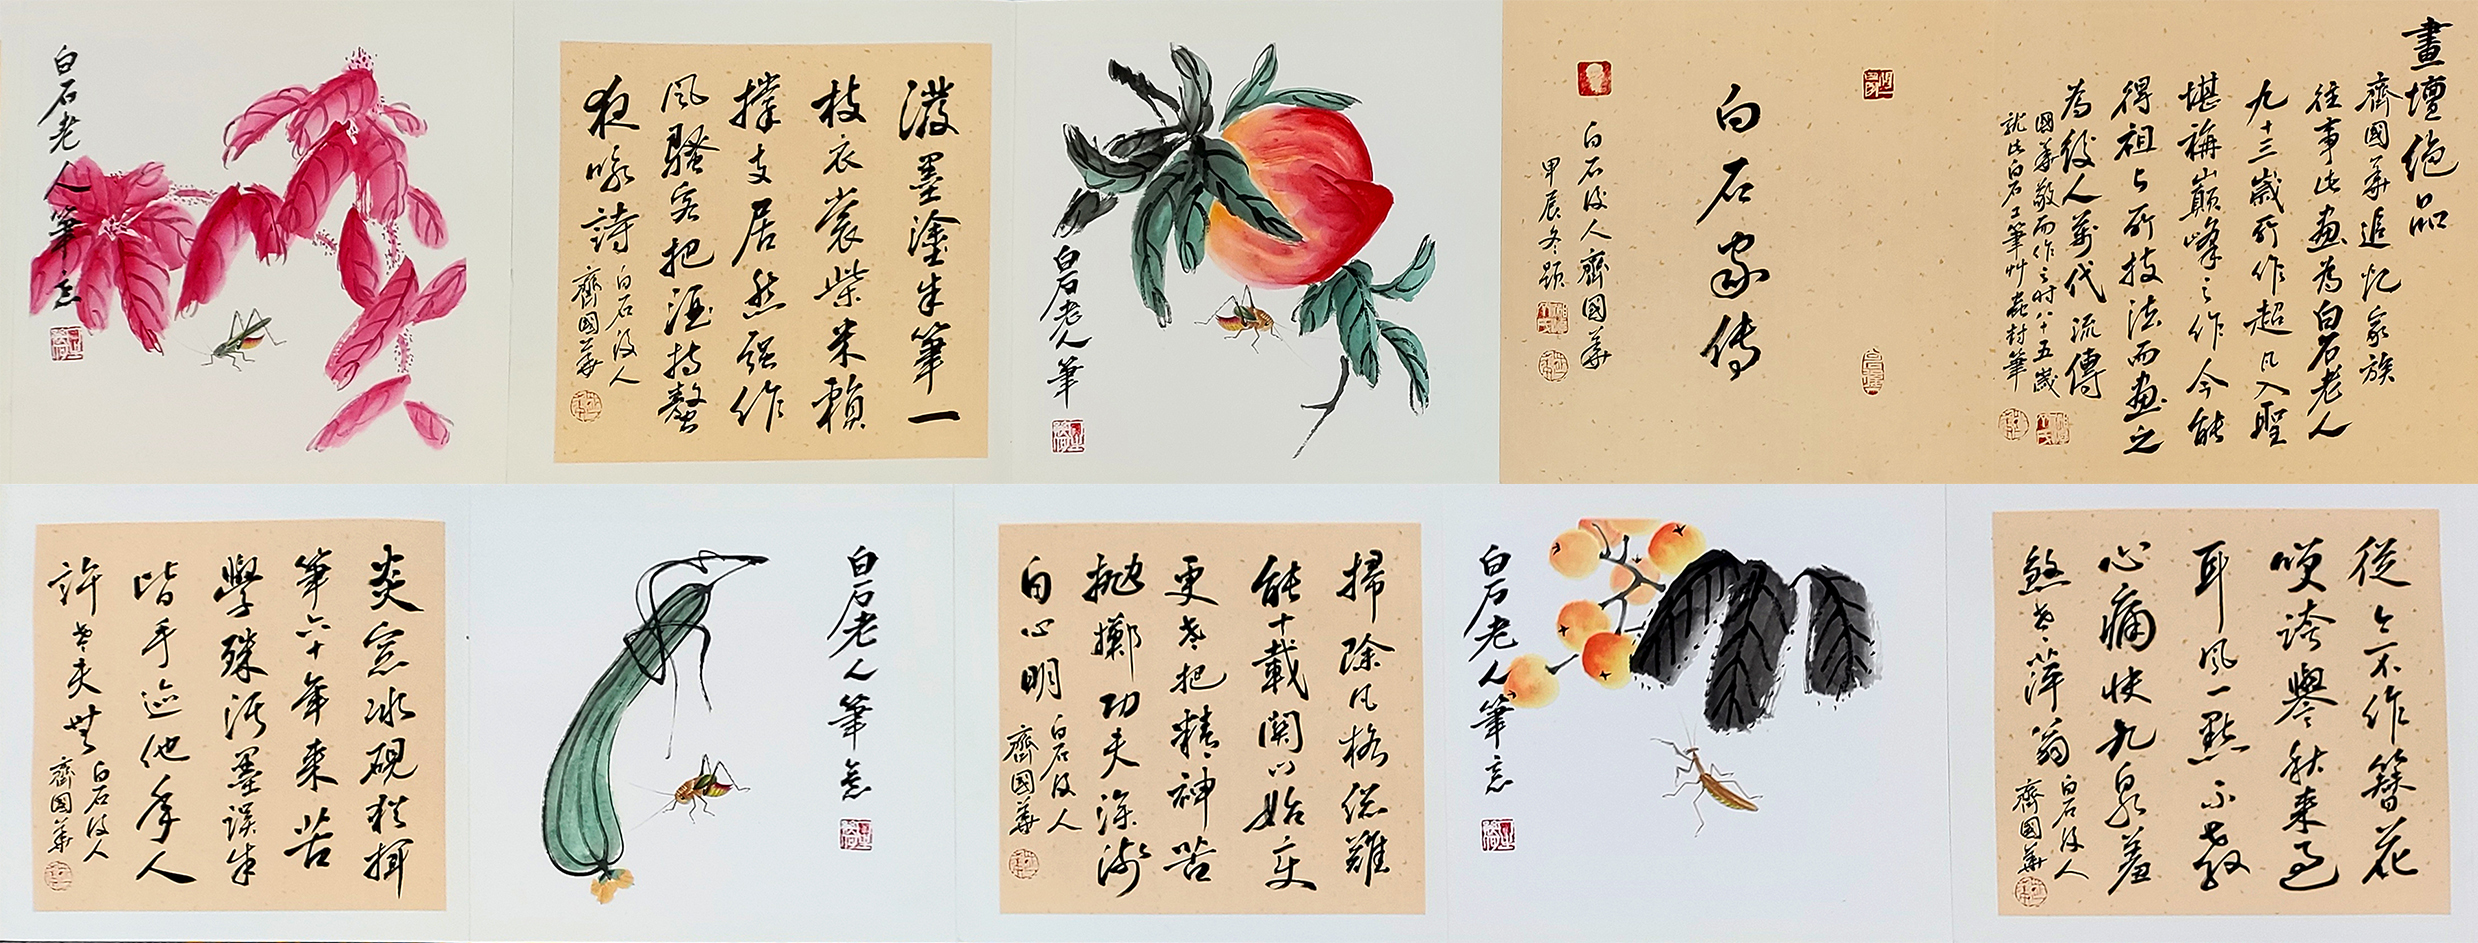 畫壇絕品
齊國華追忆家族
往事此畫為白石老人
九十三嵗所作超凡入聖
堪稱巔峰之作今能
得祖上所技法而畫之
為後人萬代流傳
國華敬而作之时八十五歲
就此白石工筆艸蟲封筆
白石家传
白石後人齊國華
甲辰冬題
白石老人筆
潑墨塗朱筆一
枝衣裳柴米賴
撐支居然強作
風騷客把酒持螯
夜咏詩
白石後人
齊國華
白石老人筆意
從今不作簪花
笑誇譽秋來過
耳風一點不教
心痛快九泉羞
煞老萍翁
白石後人
齊國華
白石老人筆意
掃除凡格總難
能十載關门始变
更老把精神苦
抛擲功夫深淺
自心明
白石後人
齊國華
白石老人筆意
炎窓冰硯猶揮
筆六十年來苦
學殊活墨誤朱
皆手迹他年人
許老夫無
白石後人
齊國華